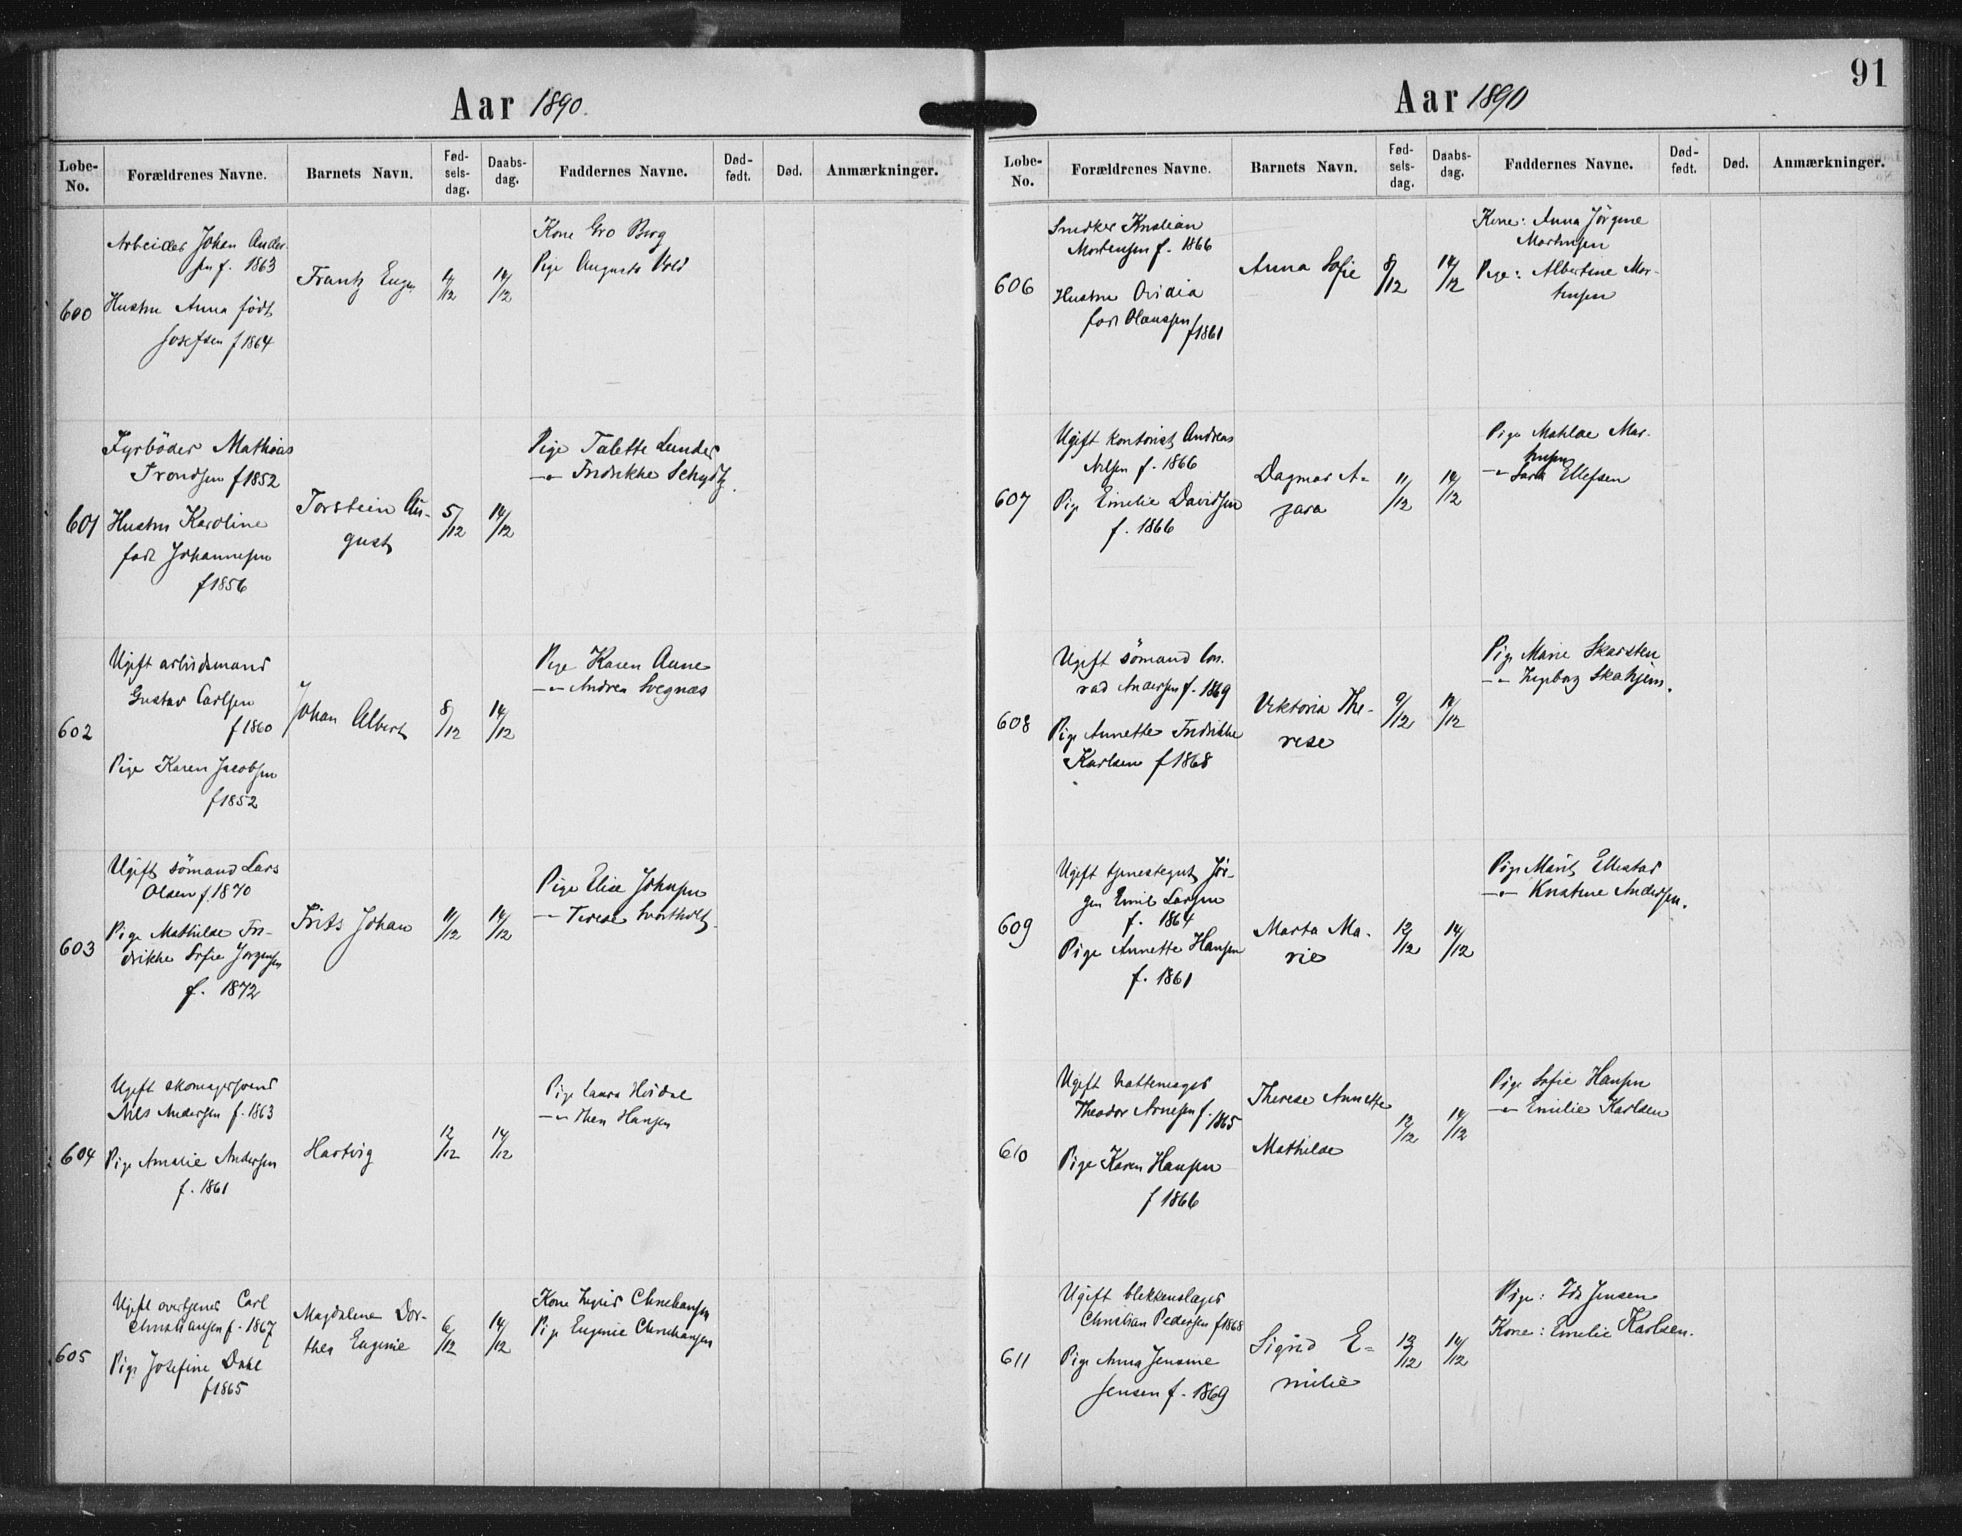 Aar 1890.
Lobe-No. Forældrenes Navne. Barnets Navn. Fød-sels-dag. Daabs-dag. Faddernes Navne. Død-født. Død. Anmærkninger.
600
Arbeider Johan Ander-
sen f. 1863
Hustru Anna født
Josefsen f 1864
Frantz
14/12
Kone Gro Berg
Pige Augusta Vold
601
Fyrbøder Mathias
Trondsen f 1852
Hustru Karoline
født Johannesen
f 1856
Torstein Au-
gust
5/12
14/12
Pige Talette Lunder
-"- Fredrikke Schydtz.
602
Ugift arbeidsmand
Gustav Carlsen
f 1860
Pige Karen Jacobsen
f 1852
Johan Albert
8/12
14/12
Pige Karen Aune
-"- Andrea Svegnæs
603
Ugift sömand Lars
Olsen f. 1870
Pige Mathilde Fre-
drikke Sofie Jørgensen
f. 1872
Frits Johan
11/12
14/12
Pige Elise Johnsen
-"- Terese Svartholt
604
Ugift skomagersvend
Nils Andersen f. 1863
Pige Amalie Andersen
f. 1861
Hartvig
12/12
14/12
Pige Laura Høidal
-"- Thea Hansen
605
Ugift overtjener Carl
Christiansen f. 1867
Pige Josefine Dahl
f 1865
Magdalena Dor-
thea Eugenie
6/12
14/12
Kone Ingrid Christiansen
Pige Eugenie Christiansen
91
Aar 1890
Lobe-No. Forældrenes Navne. Barnets Navn. Fød-sels-dag. Daabs-dag. Faddernes Navne. Død-født. Død. Anmærkninger.
606
Snedker Kristian
Mortensen f. 1866
Hustru Ovidia
født Olaussen
f 1861
Anna Sofie
8/12
14/12
Kone: Anna Jørgine
Martinsen
Pige: Albertine Mar-
tinsen
607
Ugift kontorist Andreas
Nilsen f. 1866
Pige Emelie Davidsen
f. 1866
Dagmar A-
zara
11/12
14/12
Pige Mathilde Mar-
tinsen
-"- Sara Ellefsen
608
Ugift sömand Con-
rad Andersen f. 1869
Pige Annette Fredrikke
Karlsen f 1868
Viktoria The-
rese
9/12
14/12
Pige Marie Skarsten
-"- Ingeborg Skahjem.
609
Ugift tjenestegut Jör-
gen Emil Larsen
f. 1864
Pige Annette Hansen
f. 1861
Marta Ma-
rie
12/12
14/12
Pige Marit Ellestad
-"- Kristine Andersen.
610
Ugift hattemager
Theodor Arnesen f. 1865
Pige Karen Hansen
f 1866
Therese Annette
Mathilde
12/12
14/12
Pige Sofie Hansen
-"- Emilie Karlsen
611
Ugift blekkenslager
Christian Pedersen f 1868
Pige Anna Jensine
Jensen f. 1869
Sigrid E-
milie
13/12
14/12
Pige: Ida Jensen
Kone: Emelie Karlsen.